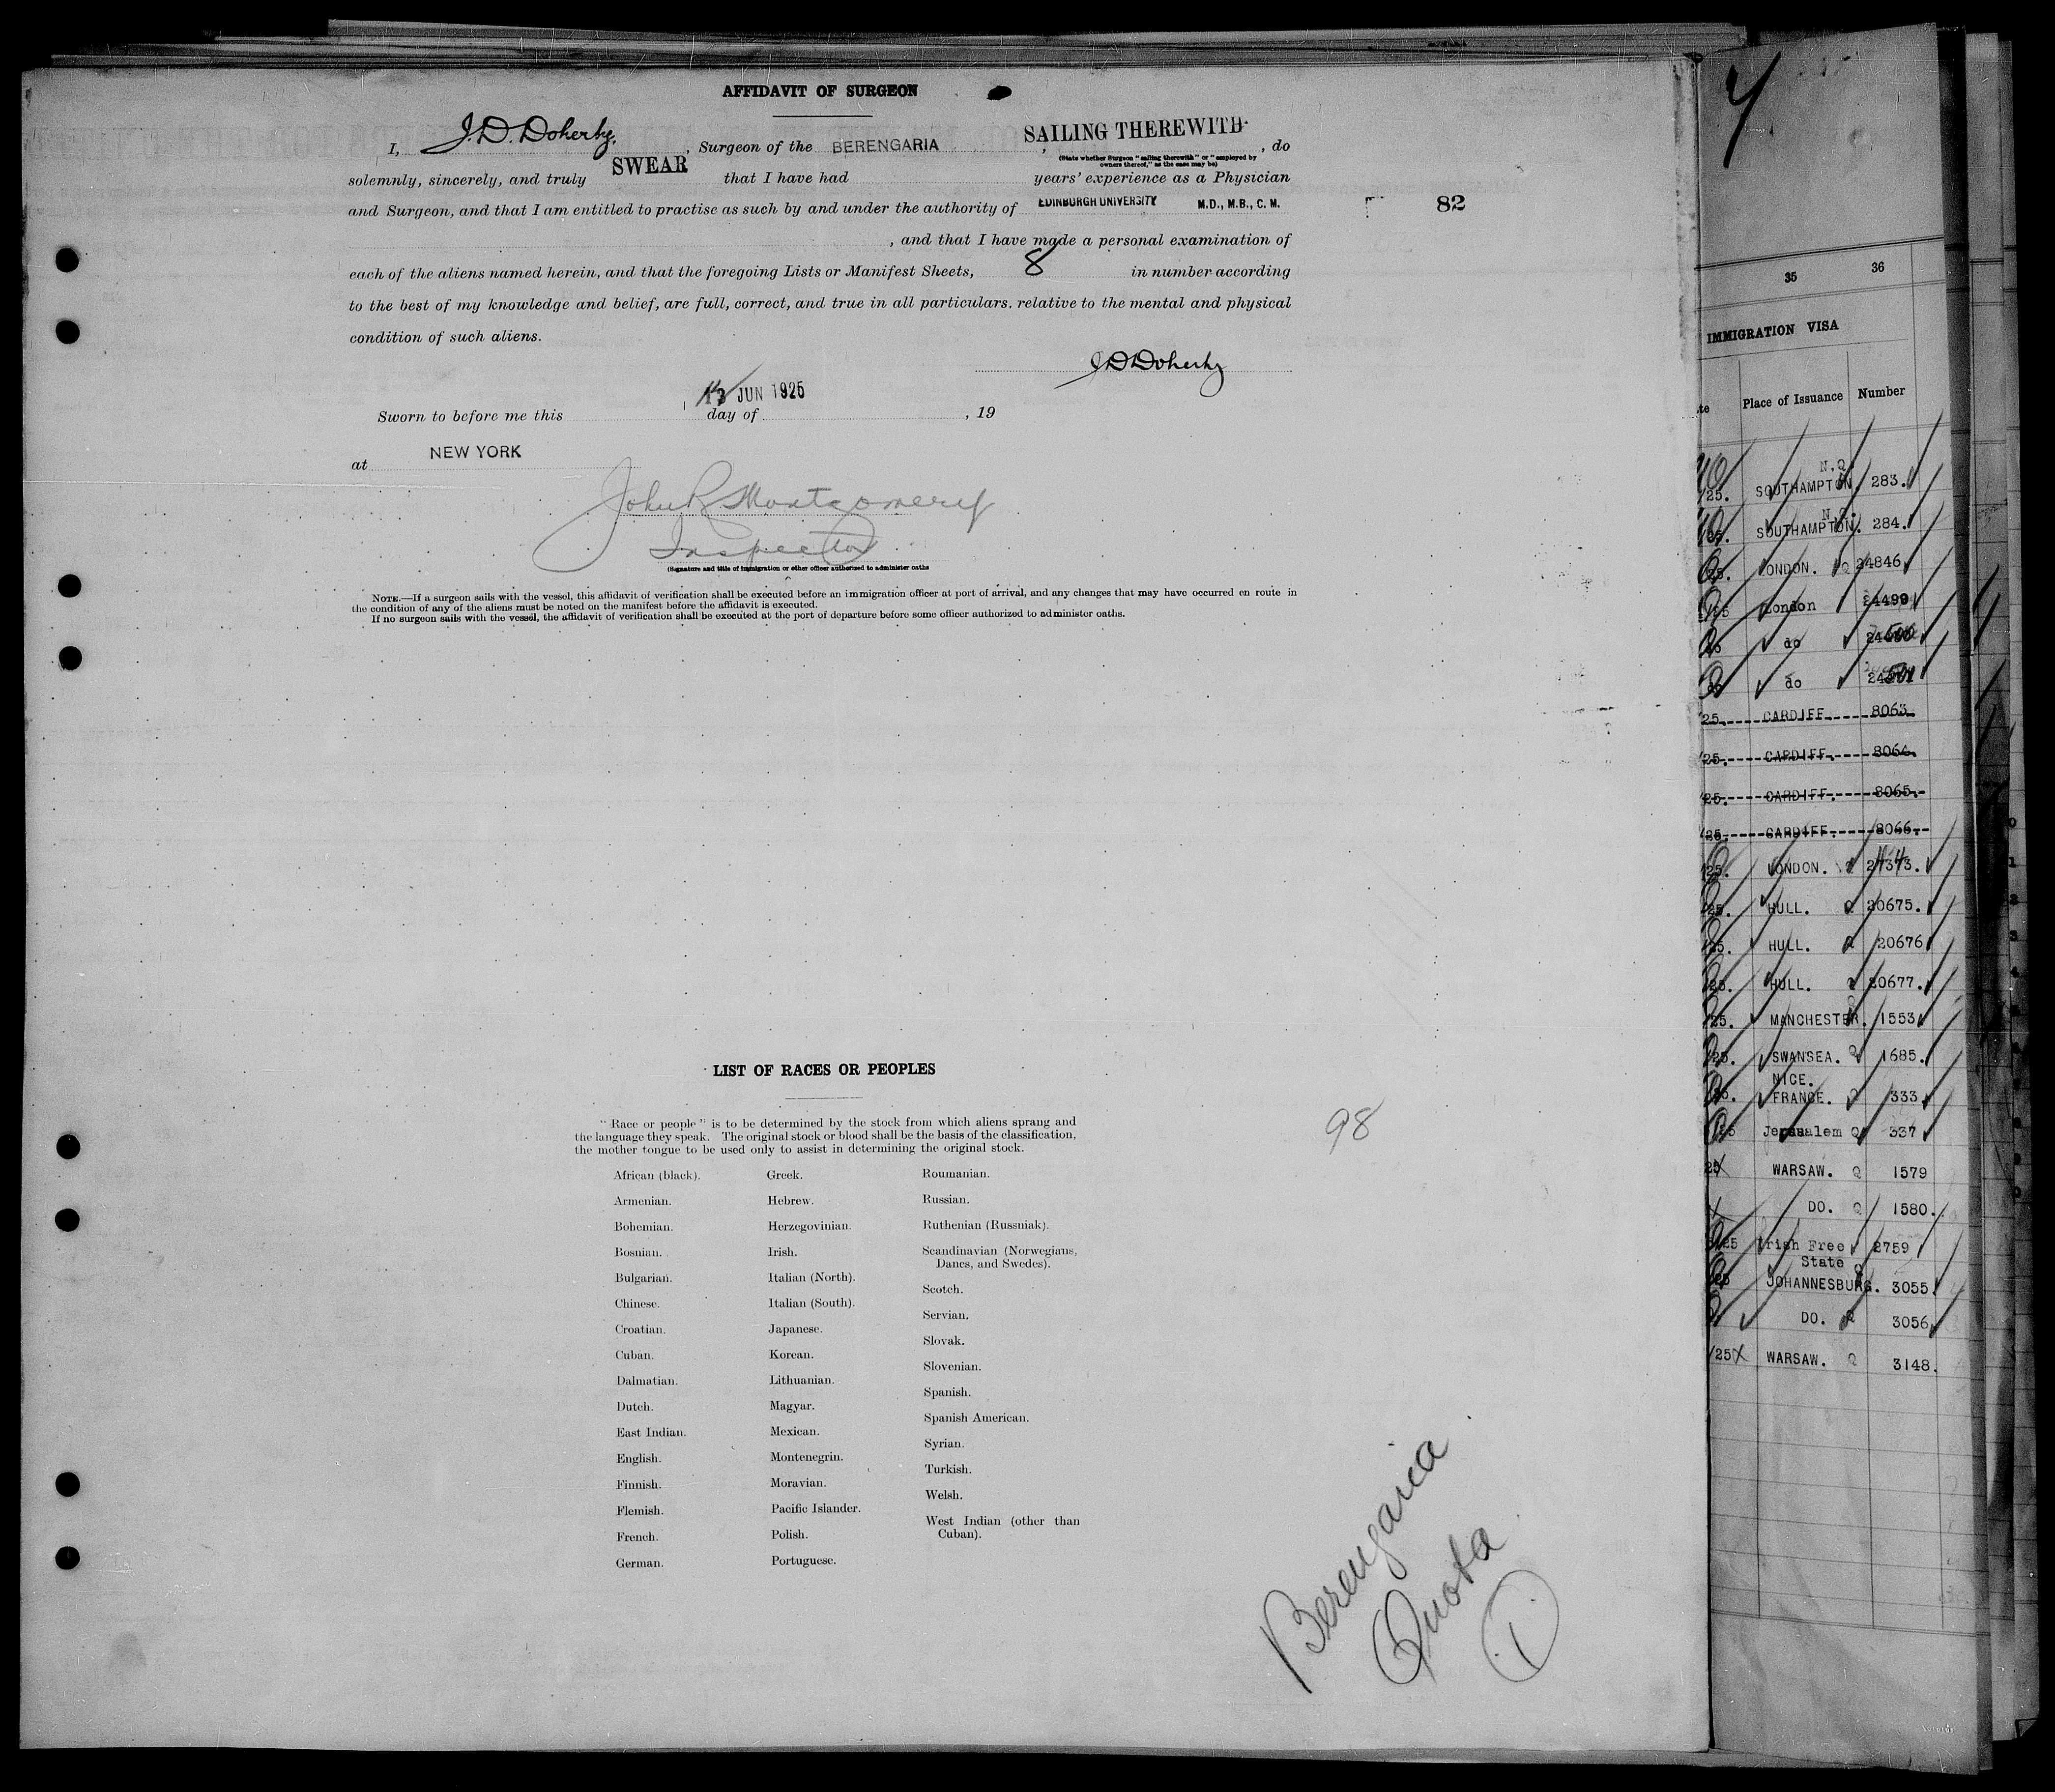 AFFIDAVIT OF SURGEON
I, J. D. Doherty, , Surgeon of the BERENGARIA , SAILING THEREWITH , do
(State whether Surgeon "sailing therewith" or "employed by
owners thereof," as the case may be)
solemnly, sincerely, and truly SWEAR that I have had years' experience as a Physician
and Surgeon, and that I am entitled to practise as such by and under the authority of EDINBURGH UNIVERSITY M.D., M.B., C. M.
, and that I have made a personal examination of
each of the aliens named herein, and that the foregoing Lists or Manifest Sheets, 8 in number according
to the best of my knowledge and belief, are full, correct, and true in all particulars. relative to the mental and physical
condition of such aliens.
J D Doherty
Sworn to before me this 13 JUN 1925 day of , 19
at NEW YORK
John R Montgomery
Inspector
(Signature and title of immigration or other officer authorized to administer oaths
NOTE.—If a surgeon sails with the vessel, this affidavit of verification shall be executed before an immigration officer at port of arrival, and any changes that may have occurred en route in
the condition of any of the aliens must be noted on the manifest before the affidavit is executed.
If no surgeon sails with the vessel, the affidavit of verification shall be executed at the port of departure before some officer authorized to administer oaths.
82
LIST OF RACES OR PEOPLES
"Race or people" is to be determined by the stock from which aliens sprang and
the language they speak. The original stock or blood shall be the basis of the classification,
the mother tongue to be used only to assist in determining the original stock.
98
African (black).
Armenian.
Bohemian.
Bosnian.
Bulgarian.
Chinese.
Croatian.
Cuban.
Dalmatian.
Dutch.
East Indian.
English.
Finnish.
Flemish.
French.
German.
Greek.
Hebrew.
Herzegovinian.
Irish.
Italian (North).
Italian (South).
Japanese.
Korean.
Lithuanian.
Magyar.
Mexican.
Montenegrin.
Moravian.
Pacific Islander.
Polish.
Portuguese.
Roumanian.
Russian.
Ruthenian (Russniak).
Scandinavian (Norwegians,
Danes, and Swedes).
Scotch.
Servian.
Slovak.
Slovenian.
Spanish.
Spanish American.
Syrian.
Turkish.
Welsh.
West Indian (other than
Cuban).
Berengaria
Quota
1
35 36
IMMIGRATION VISA
te Place of Issuance Number
N.Q.
/25. SOUTHAMPTON. 283.
N.Q.
SOUTHAMPTON. 284.
25. LONDON. Q 24846
London 24499
do
do
25. CARDIFF. 8063.
/25. CARDIFF. 8064.
/25. CARDIFF. 8065.
/25. CARDIFF. 8066.
/25. LONDON.
/25. HULL. Q 20675.
/25. HULL. Q 20676
/25. HULL. Q 20677.
/25. MANCHESTER. 1553
/25. SWANSEA. Q 1685.
NICE.
FRANCE. Q 333
25 Jerusalem Q 337
25 WARSAW. Q 1579
DO. Q 1580.
25 Irish Free 2759
State Q
25 JOHANNESBURG. 3055
DO. Q 3056
/25 WARSAW. Q 3148.